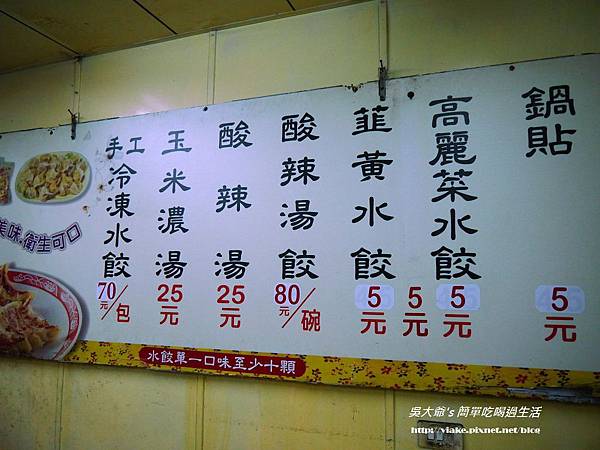 鍋貼
5元
高麗菜水餃
5元
5元
韮黃水餃
5元
酸辣湯餃
80元/碗
酸辣湯
25元
玉米濃湯
25元
手工冷凍水餃
70元/包
美味,衛生可口
水餃單一口味至少十顆
吳大爺's 簡單吃喝過生活
http://viake.pixnet.net/blog